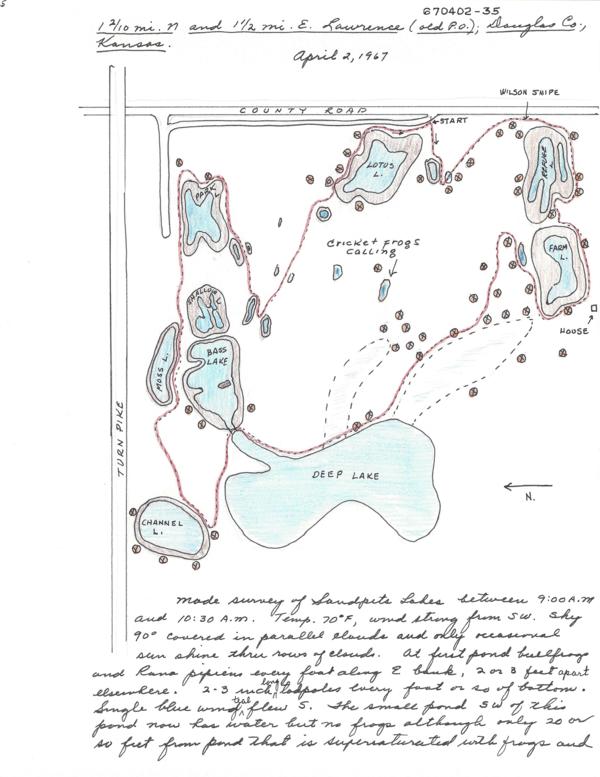 670402-35
1 2/10 mi. N and 1 1/2 mi. E. Lawrence (old P.O.); Douglas Co.,
Kansas.
April 2, 1967
WILSON SNIPE
COUNTY ROAD
START
LOTUS
L.
REFUGE
L.
PARK L.
CRICKET FROGS
CALLING
FARM
L.
HOUSE
SHALLOW L.
MOSS L.
BASS
LAKE
TURN PIKE
DEEP LAKE
N.
CHANNEL
L.
Made survey of Sandpits Lakes between 9:00 A.M
and 10:30 A.M. Temp. 70°F, wind strong from SW. Sky
90° covered in parallel clouds and only occasional
sun shine thru rows of clouds. At first pond bullfrogs
and Rana pipiens every foot along E bank, 2 or 3 feet apart
elsewhere. 2-3 inch long tadpoles every foot or so of bottom.
Single blue winged teal flew S. The small pond SW of this
pond now has water but no frogs although only 20 or
so feet from pond that is supersaturated with frogs and